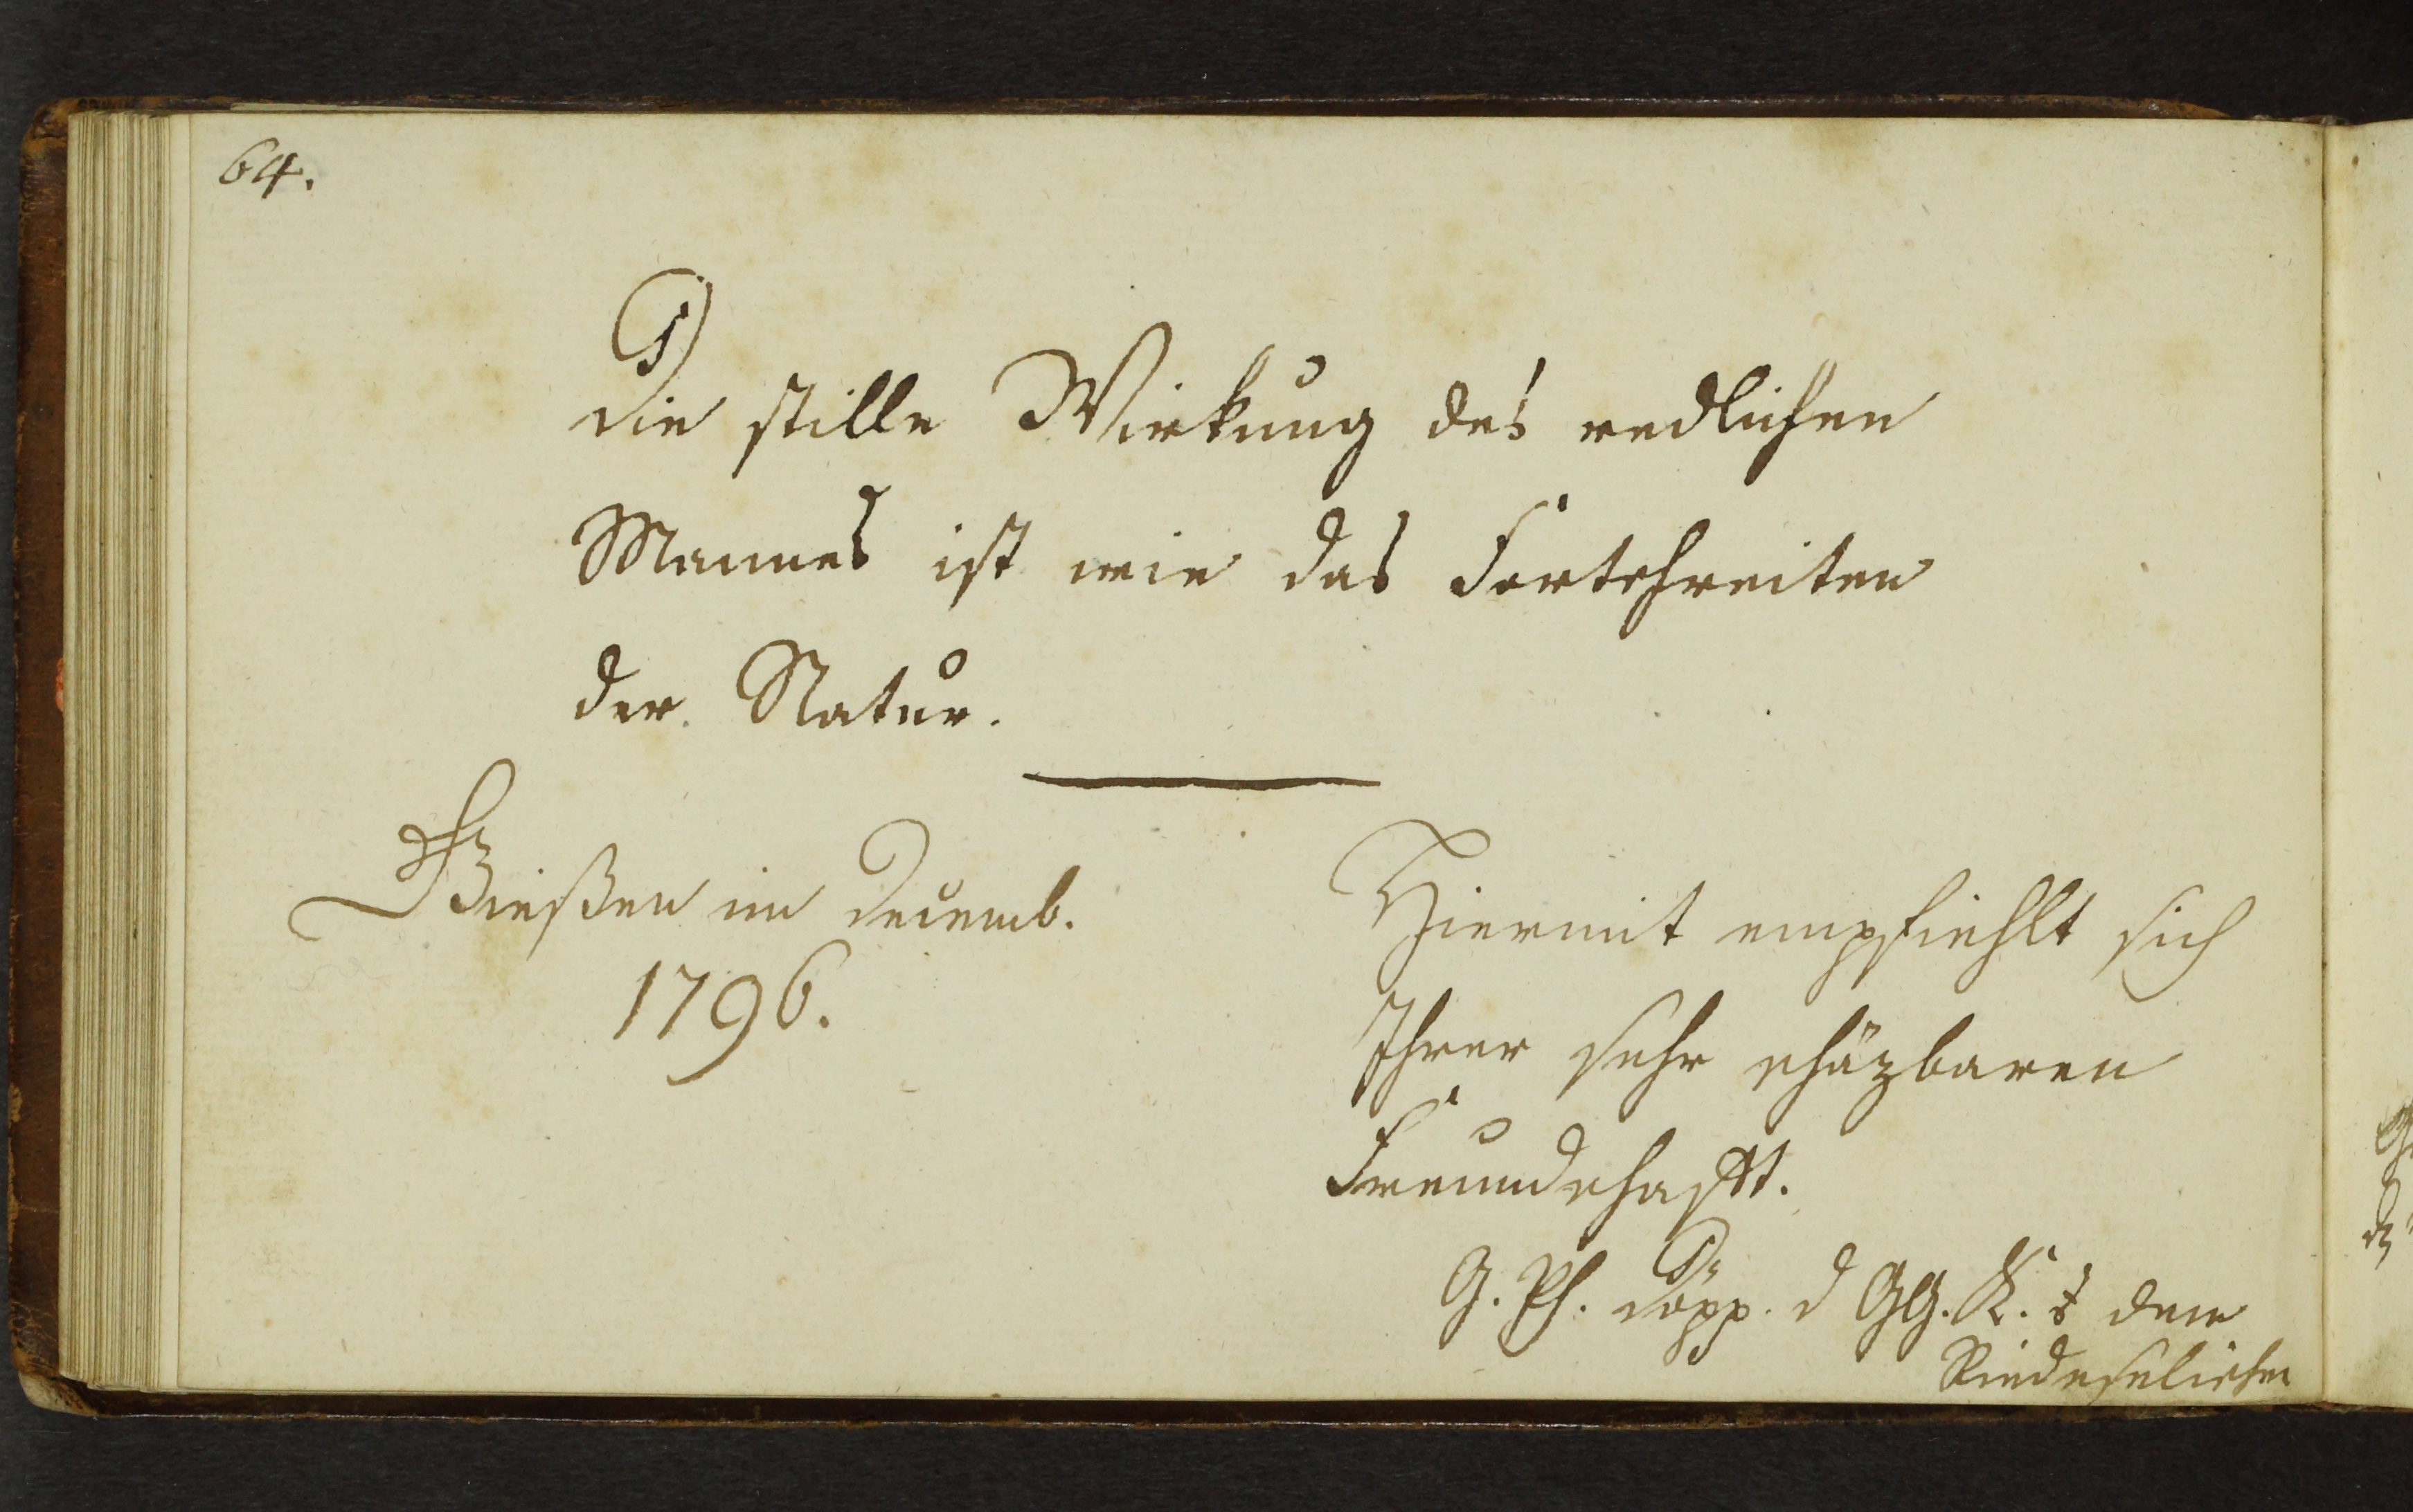 64.
Die stille Wirkung des redlichen
Mannes ist wie das Fortschreiten
der Natur.
Gießen im Decemb.
1796.
Hiermit empfiehlt sich
Ihrer sehr schäzbaren
Freundschafft.
G. Ph. Döpp. d GG. K. dem
Riedeselischen